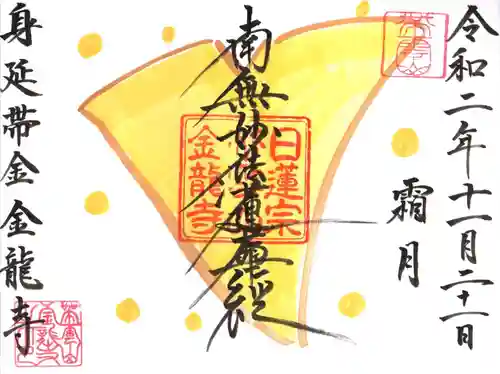 令和二年十一月二十一日
霜月
南無妙法蓮華経
日蓮宗
金龍寺
身延帯金 金龍寺